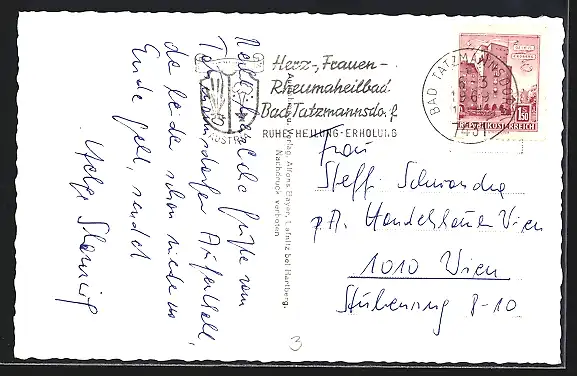 Herz-, Frauen-
Rheumaheilbad
Bad Tatzmannsdorf
RUHE-HEILUNG-ERHOLUNG
BAD TATZMANNSDORF
REPUBLIK ÖSTERREICH
1.50
Aufnahme u. Verlag Alfons Bayer, Lafnitz bei Hartberg.
Nachdruck verboten
Herzliche Grüße vom
Tatzmannsdorfer Aufenthalt,
der leider schon wieder zu
Ende geht, sendet
Helga
Frau
Steffi
p.A. Handelskammer Wien
1010 Wien
Stubenring 8-10
3